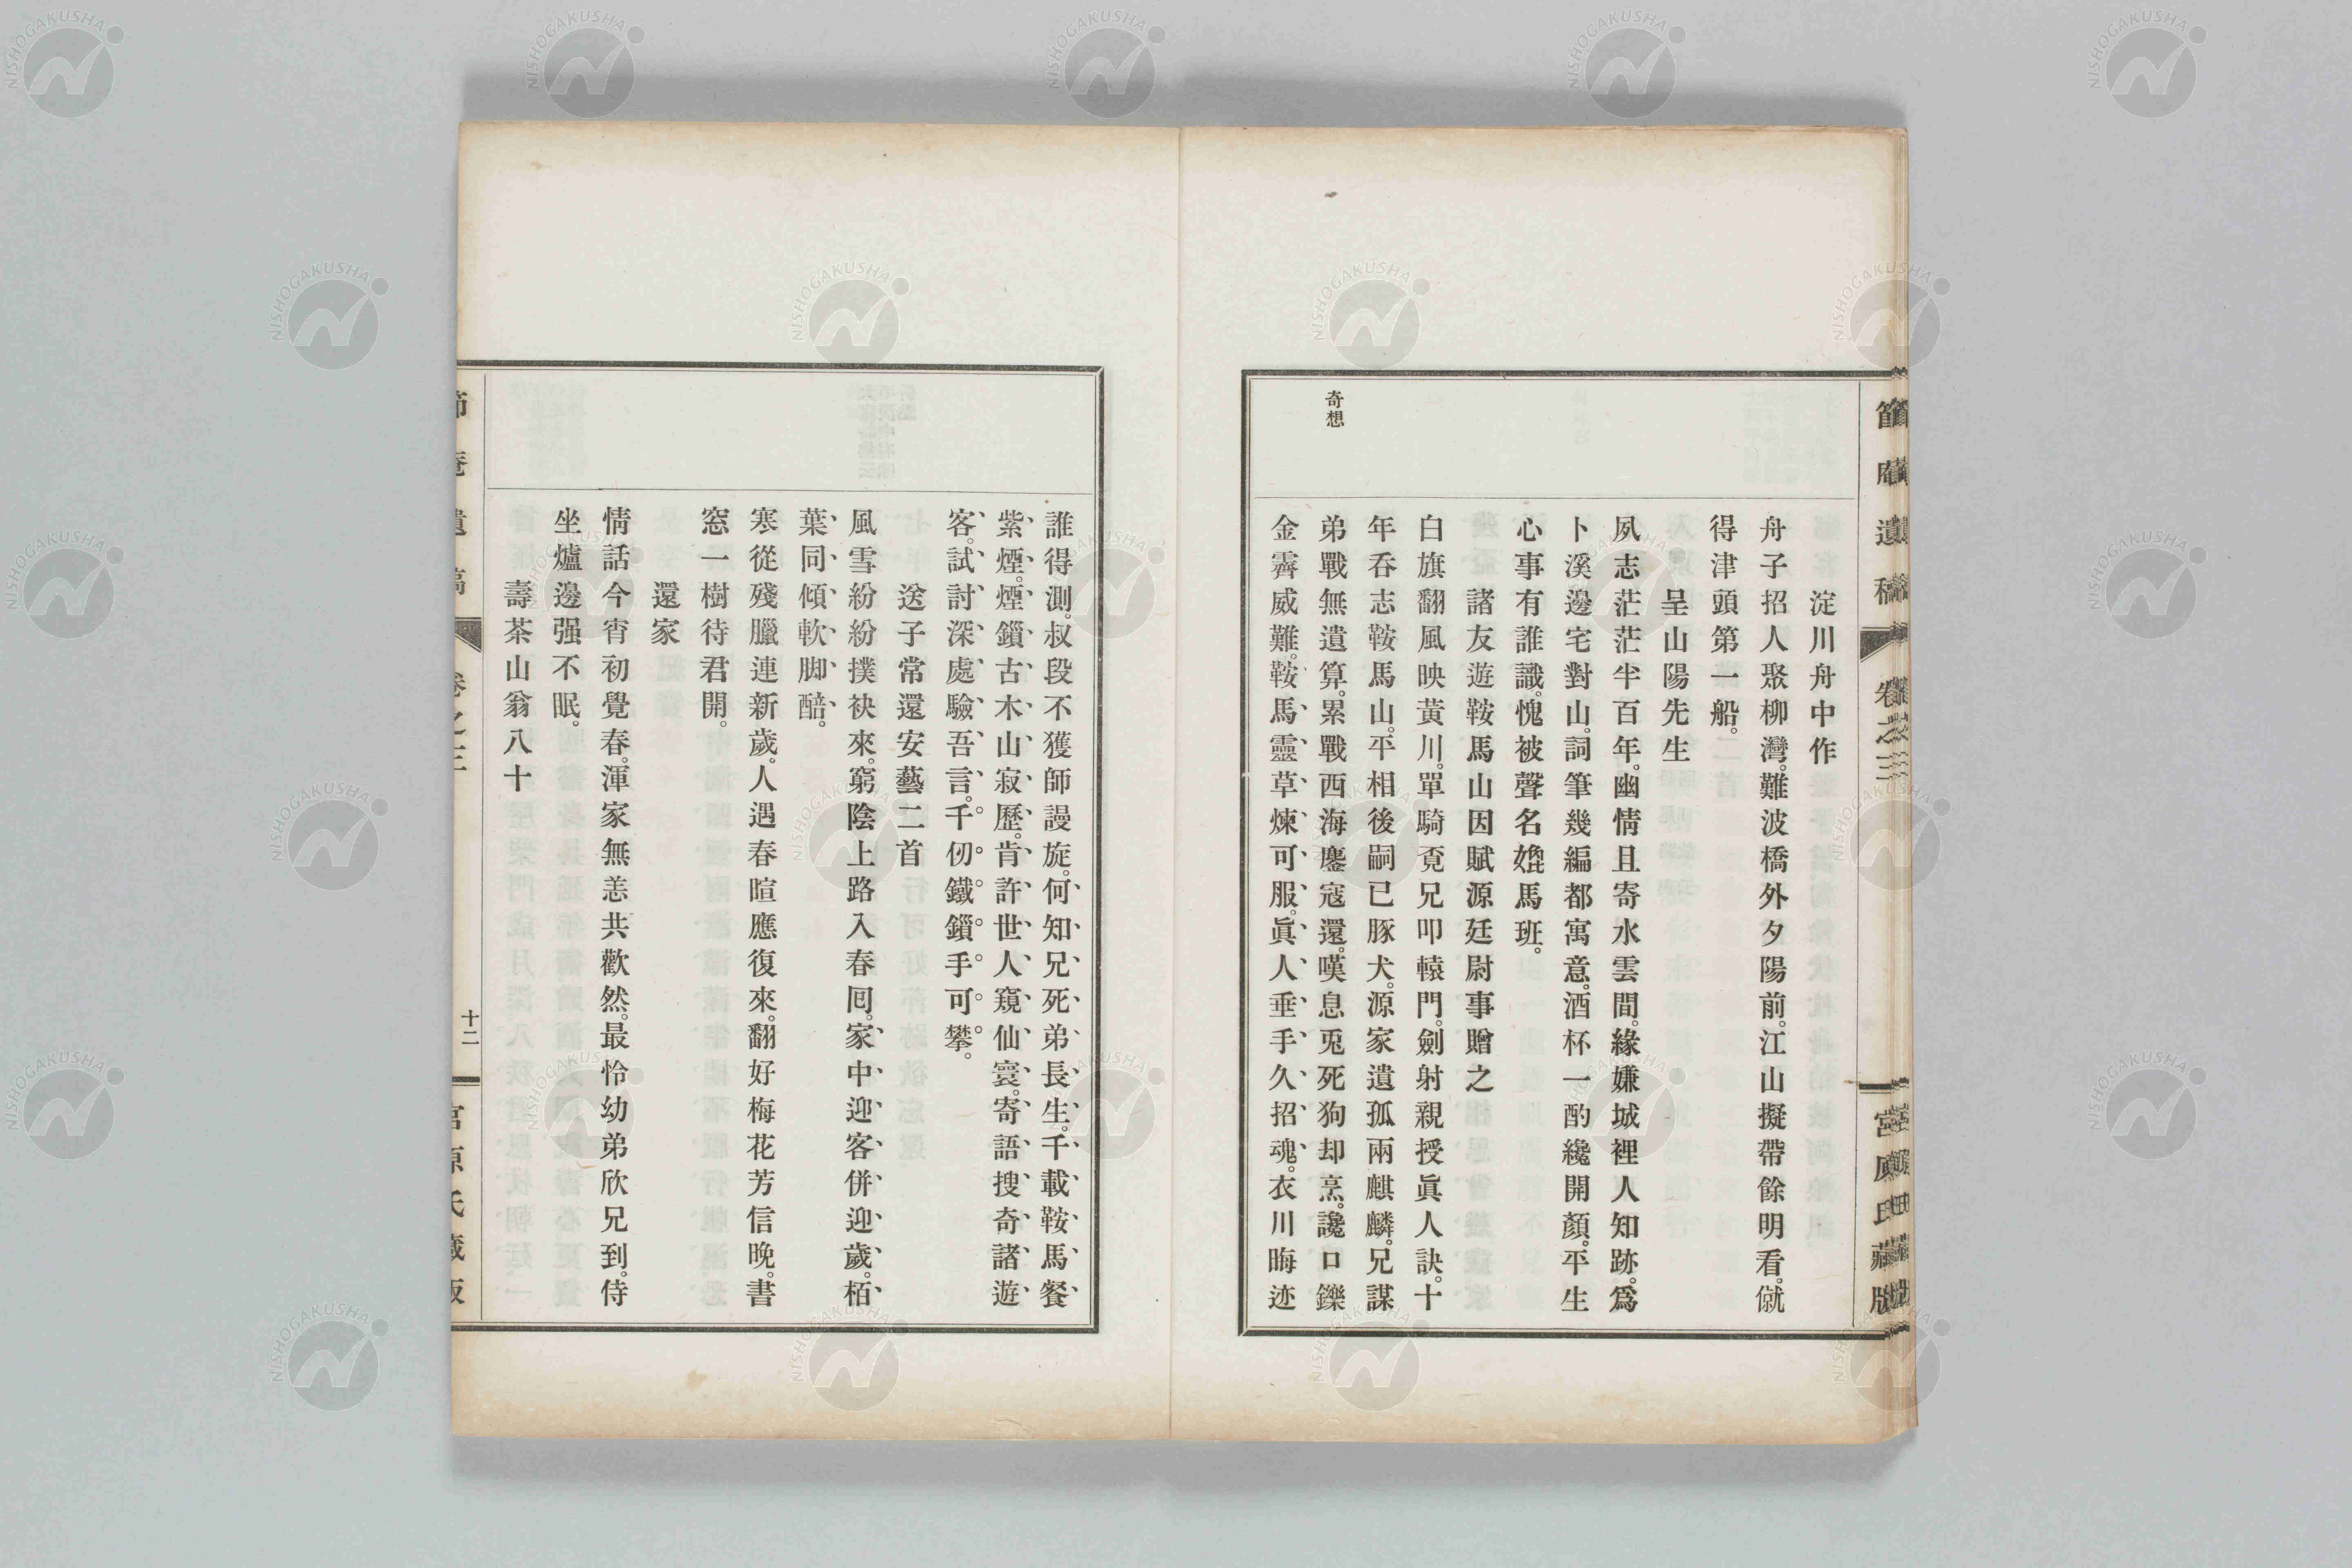 節庵遺稿
卷之三
宮原氏藏版
奇想
淀川舟中作
舟子招人聚柳灣。難波橋外夕陽前。江山擬帶餘明看。僦
得津頭第一船。
呈山陽先生
夙志茫茫半百年。幽情且寄水雲間。緣嫌城裡人知跡。爲
卜溪邊宅對山。詞筆幾編都寓意。酒杯一酌纔開顏。平生
心事有誰識。愧被聲名媿馬班。
諸友遊鞍馬山因賦源廷尉事贈之
白旗翻風映黃川。單騎覔兄叩轅門。劍射親授眞人訣。十
年呑志鞍馬山。平相後嗣已豚犬。源家遺孤兩麒麟。兄謀
弟戰無遺算。累戰西海鏖寇還。嘆息兎死狗却烹。讒口鑠
金霽威難。鞍馬靈草煉可服。眞人垂手久招魂。衣川晦迹
誰得測。叔段不獲師謾旋。何知兄死弟長生。千載鞍馬餐
紫煙。煙鎻古木山寂歷。肯許世人窺仙寰。寄語搜奇諸遊
客。試討深處驗吾言。千仞鐵鎻手可攀。
送子常還安藝二首
風雪紛紛撲袂來。窮陰上路入春囘。家中迎客併迎歲。栢
葉同傾軟脚醅。
寒從殘臘連新歲。人遇春暄應復來。翻好梅花芳信晩。書
窓一樹待君開。
還家
情話今宵初覺春。渾家無恙共歡然。最怜幼弟欣兄到。侍
坐爐邊强不眠。
壽茶山翁八十
十二